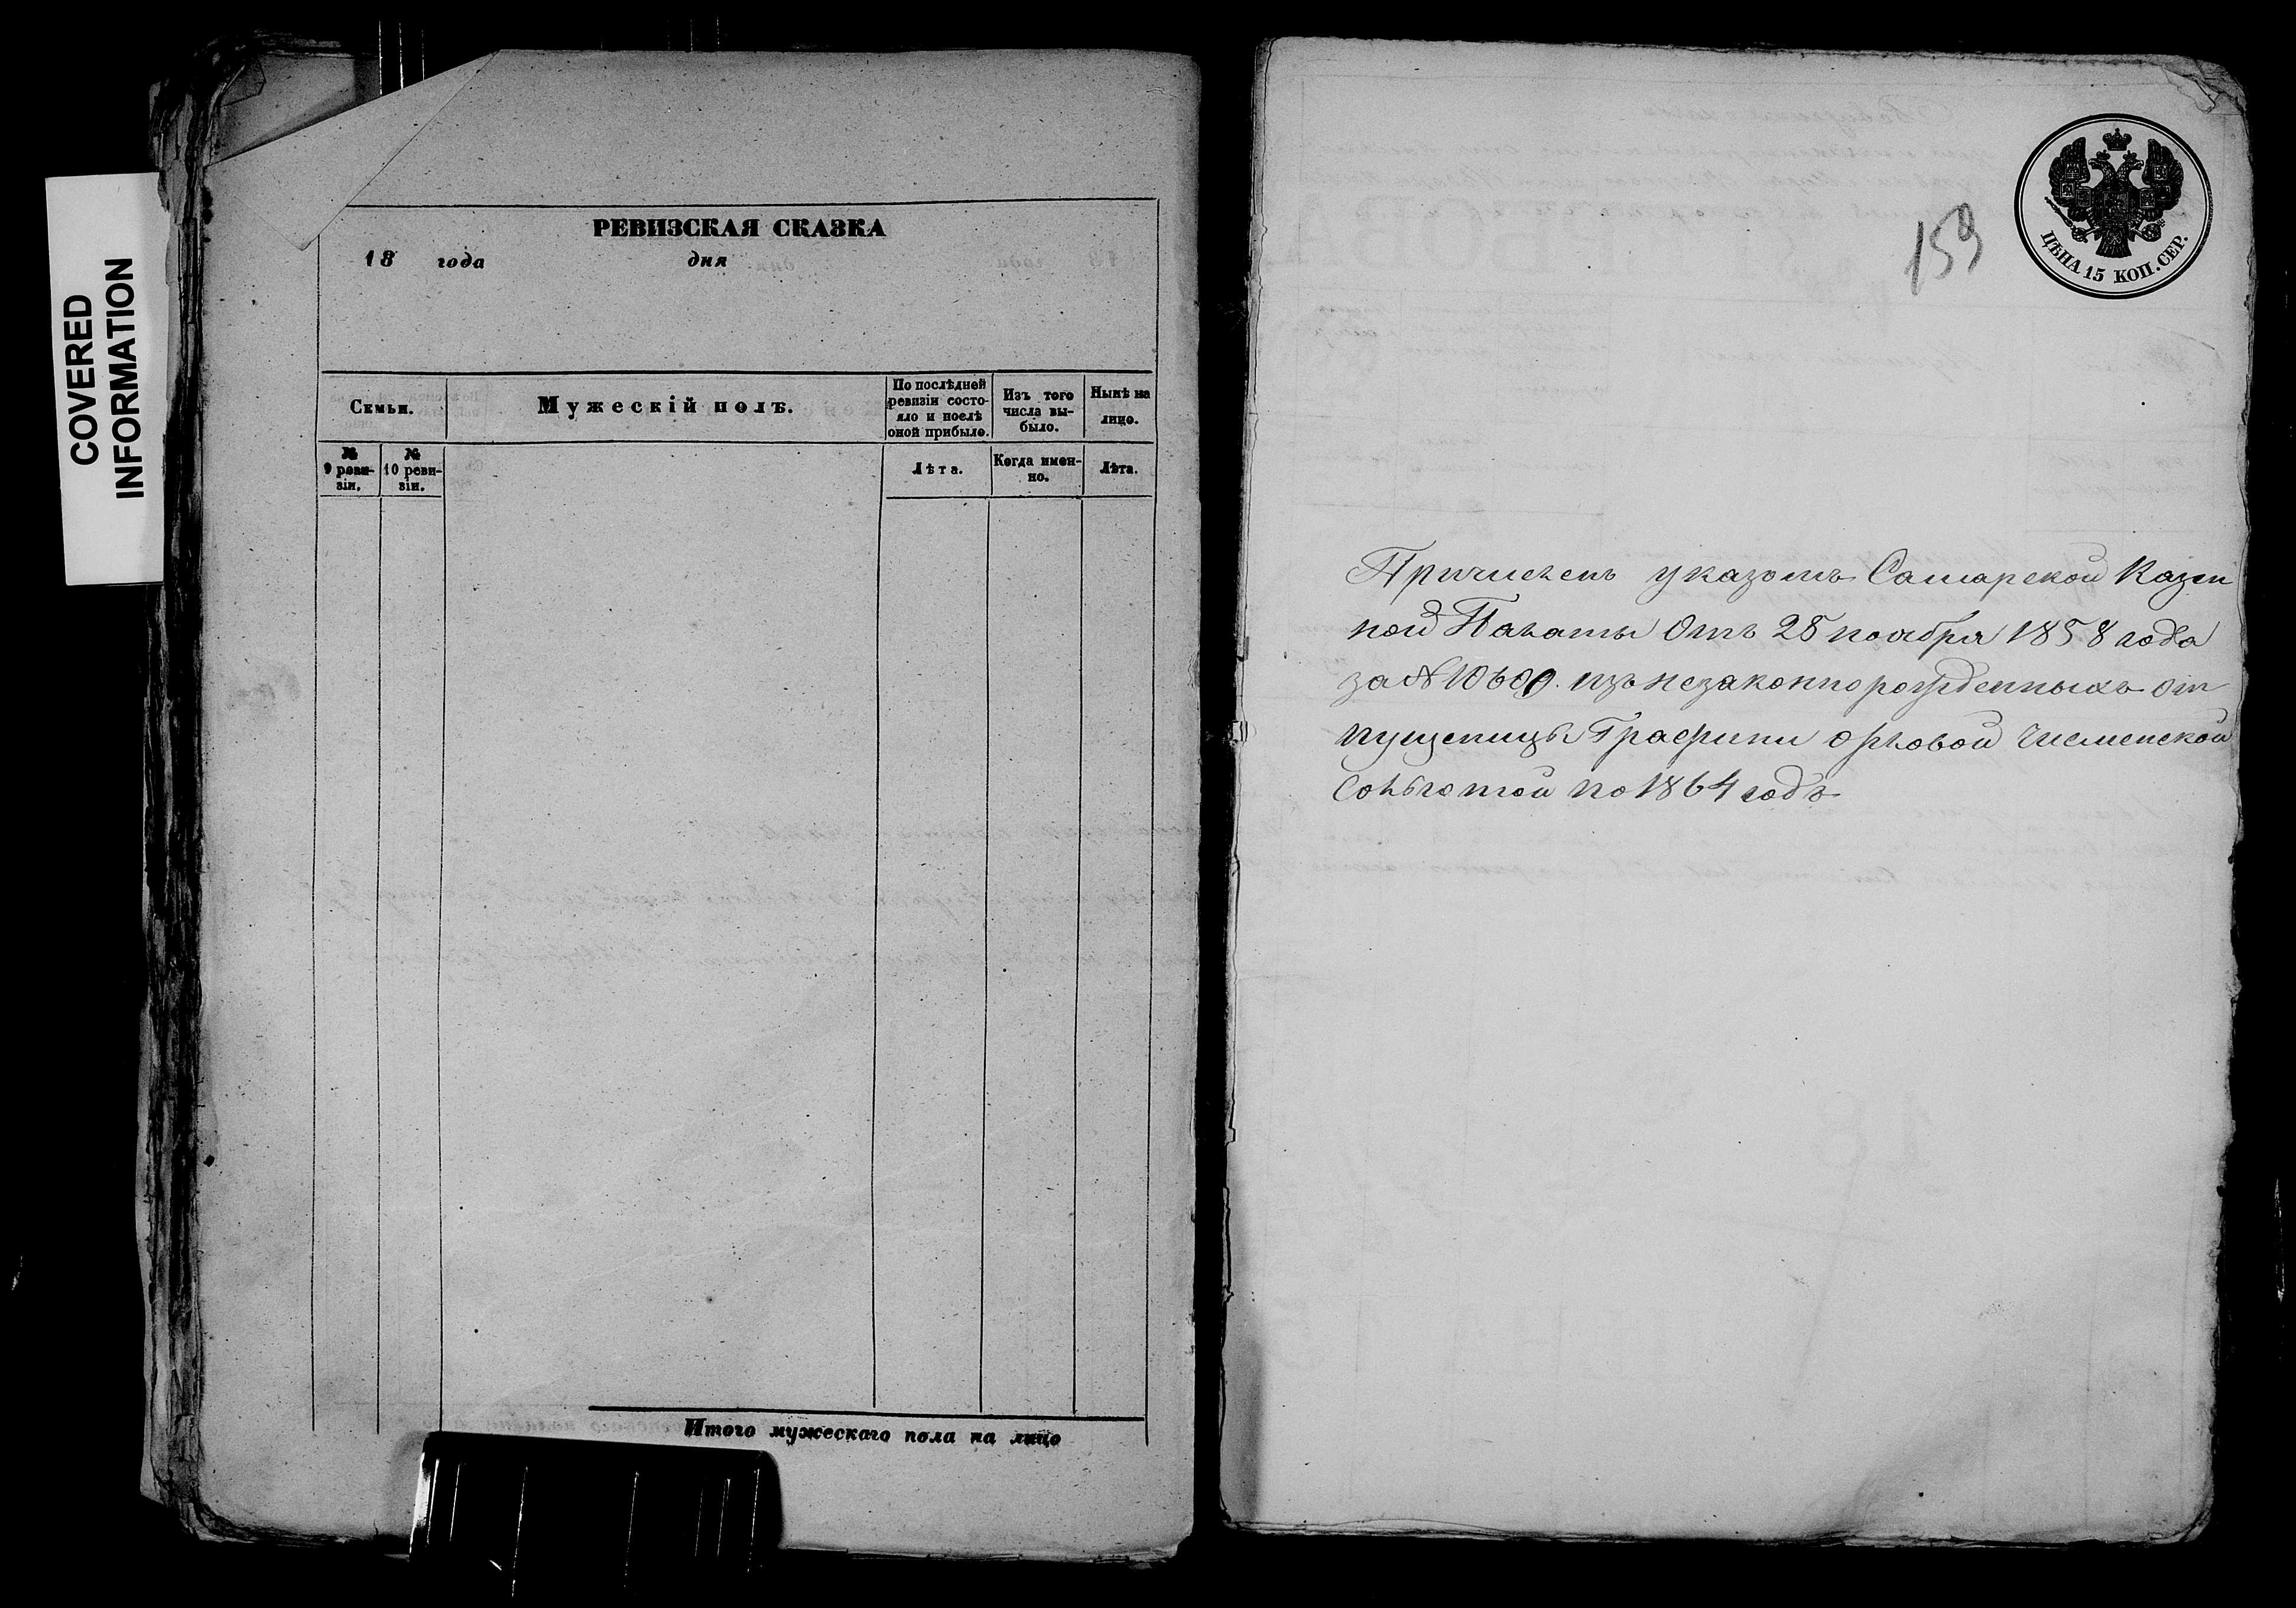 COVERED
INFORMATION
РЕВИЗСКАЯ СКАЗКА
18 года дня
Семьи.
Мужескій полъ.
По послѣдней
ревизіи состо-
яло и послѣ
оной прибыло.
Изъ того
числа вы-
было.
Нынѣ на
лицо.
№
9 реви-
зіи.
№
10 реви-
зіи.
Лѣта.
Когда имен-
но.
Лѣта.
Итого мужескаго пола на лицо
159
ЦѢНА 15 КОП. СЕР.
Причисленъ указомъ Самарской Казен
ной Палаты Отъ 28 ноября 1858 года
за № 10600. изъ незаконнорожденныхъ от
пущеницы Графини орловой Чесменской
Сольготой по 1864 годъ